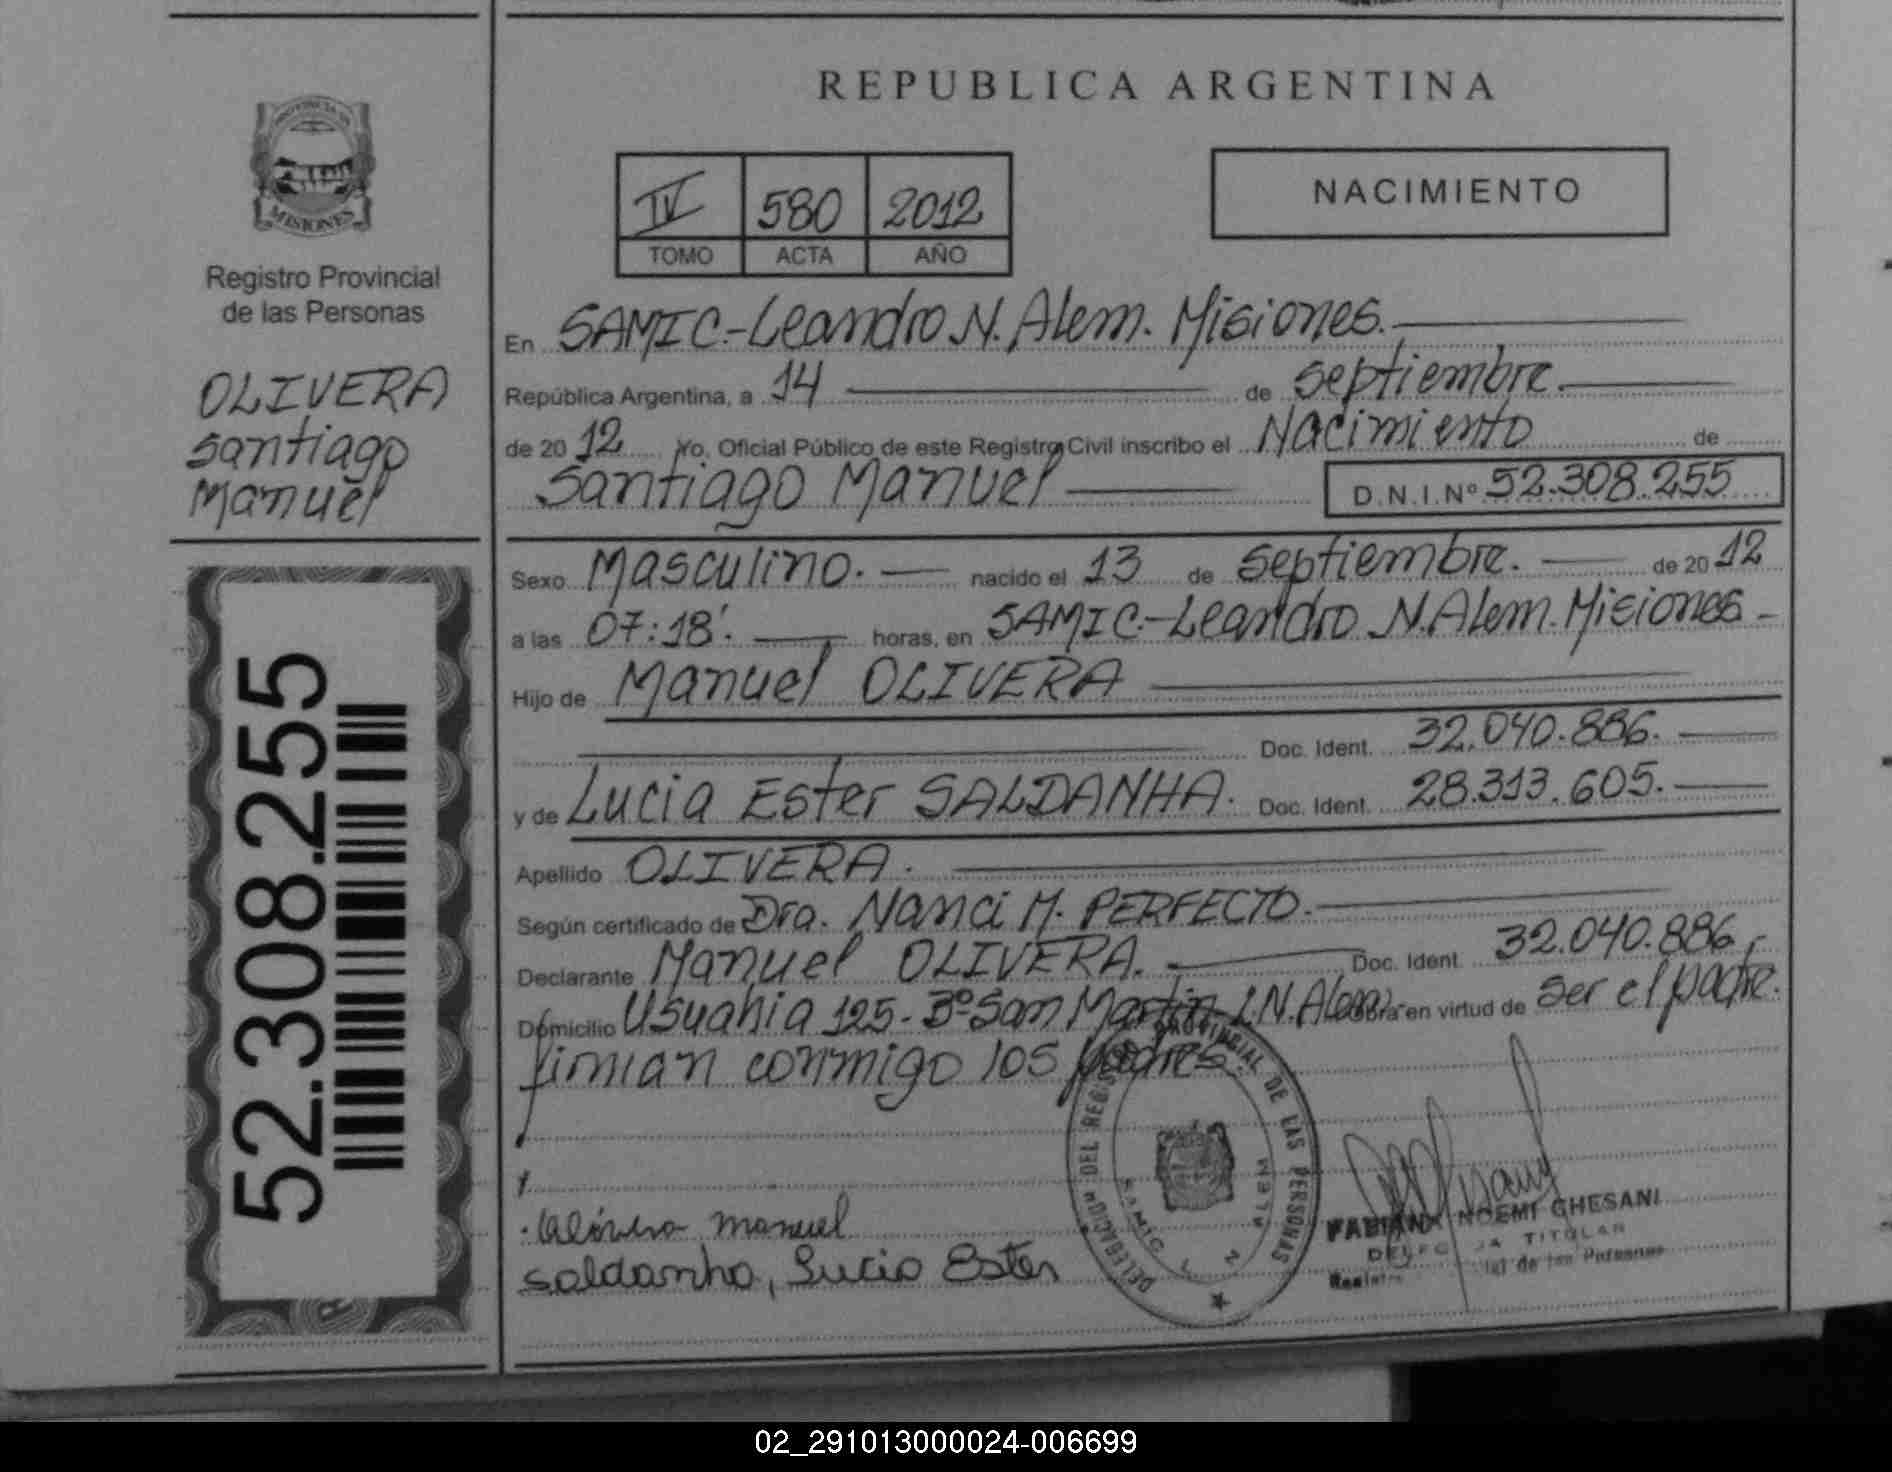 REPUBLICA ARGENTINA
PROVINCIA DE
MISIONES
Registro Provincial
de las Personas
OLIVERA
Santiago
Manuel
52.308.255
IV 580 2012
TOMO ACTA AÑO
NACIMIENTO
En SAMIC-Leandro N. Alem. Misiones.
República Argentina, a 14 de septiembre.
de 2012 Yo, Oficial Público de este Registro Civil inscribo el Nacimiento de
Santiago Manuel D.N.I.Nº 52.308.255
Sexo Masculino. nacido el 13 de septiembre. de 2012
a las 07:18'. horas, en SAMIC.-Leandro N. Alem. Misiones
Hijo de Manuel OLIVERA
Doc. Ident. 32.040.886.
y de Lucia Ester SALDANHA. Doc. Ident. 28.313.605.
Apellido OLIVERA.
Según certificado de Dra. Nanci M. PERFECTO.
Declarante Manuel OLIVERA. Doc. Ident. 32.040.886
Domicilio Usuahia 125- Bº San Martin L.N.Alem. Obra en virtud de ser el padre.
firman conmigo los padres.
Olivera manuel
saldanha, Lucia Ester
DELEGACION DEL REGISTRO PROVINCIAL DE LAS PERSONAS
SAMIC L. N. ALEM
FABIANA NOEMI GHESANI
DELEGADA TITULAR
de las Personas
02_291013000024-006699